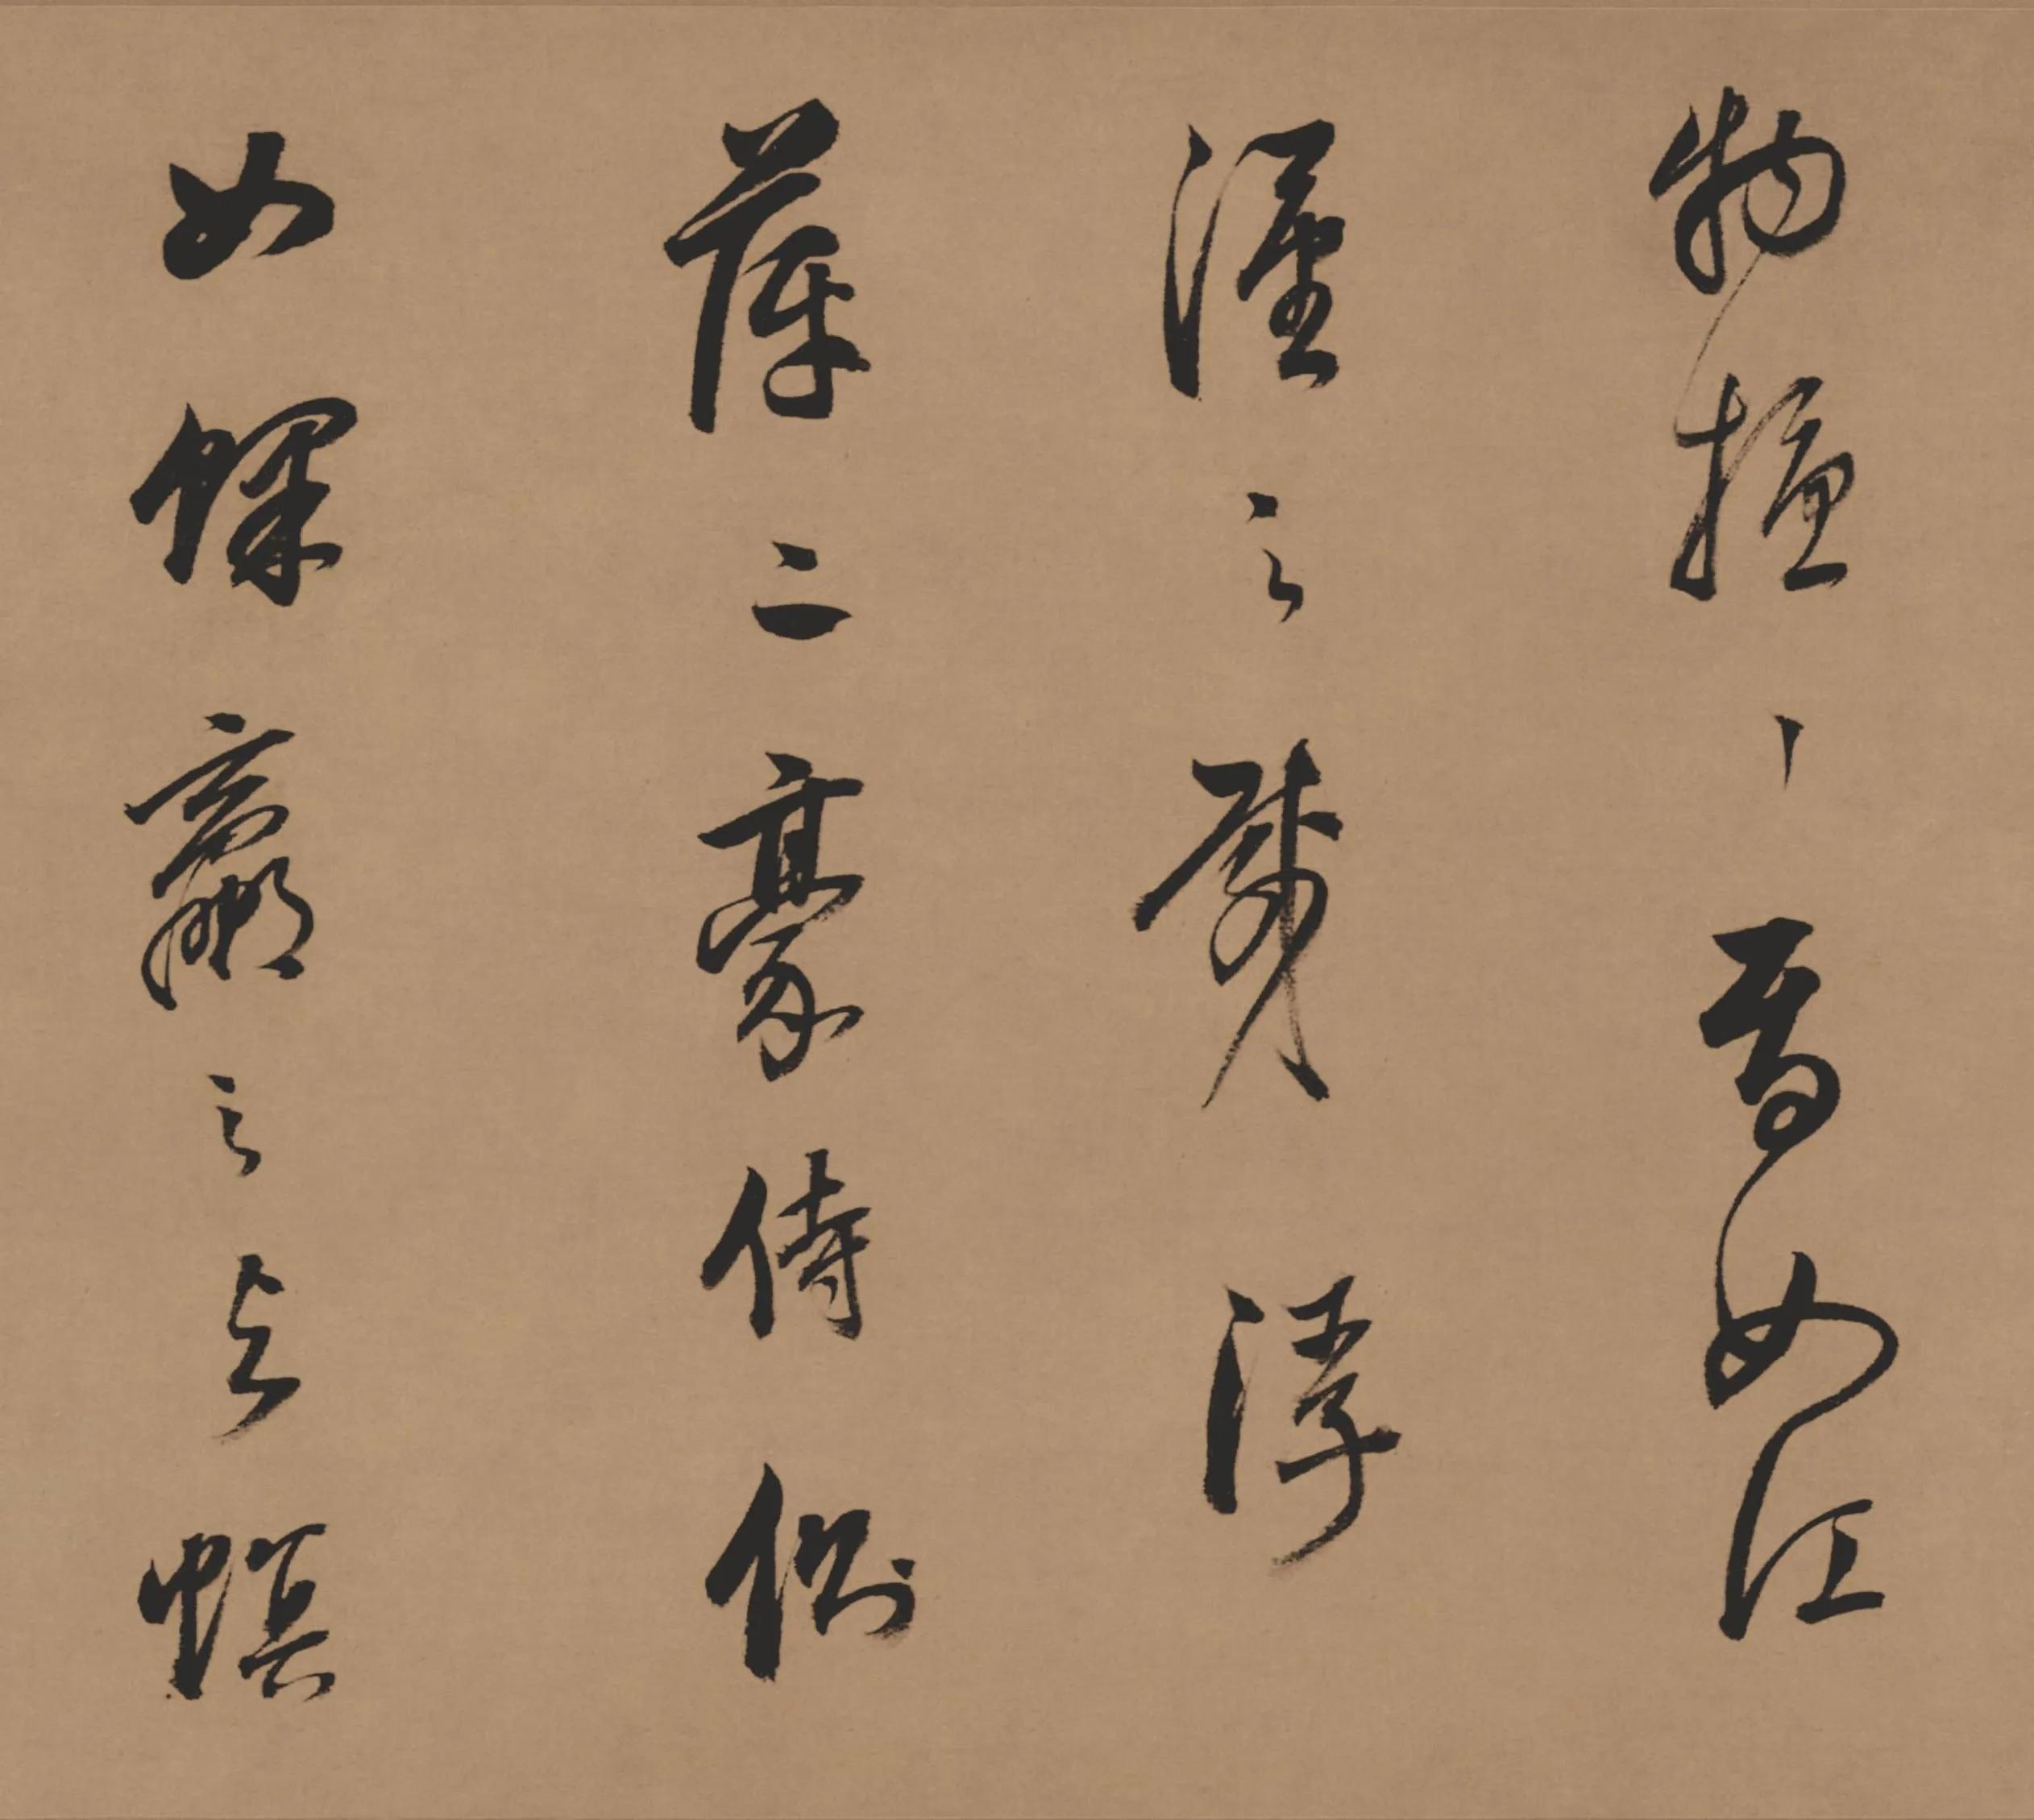 物擾々焉如江
漢之載浮
萍二豪侍側
如蜾蠃之與螟